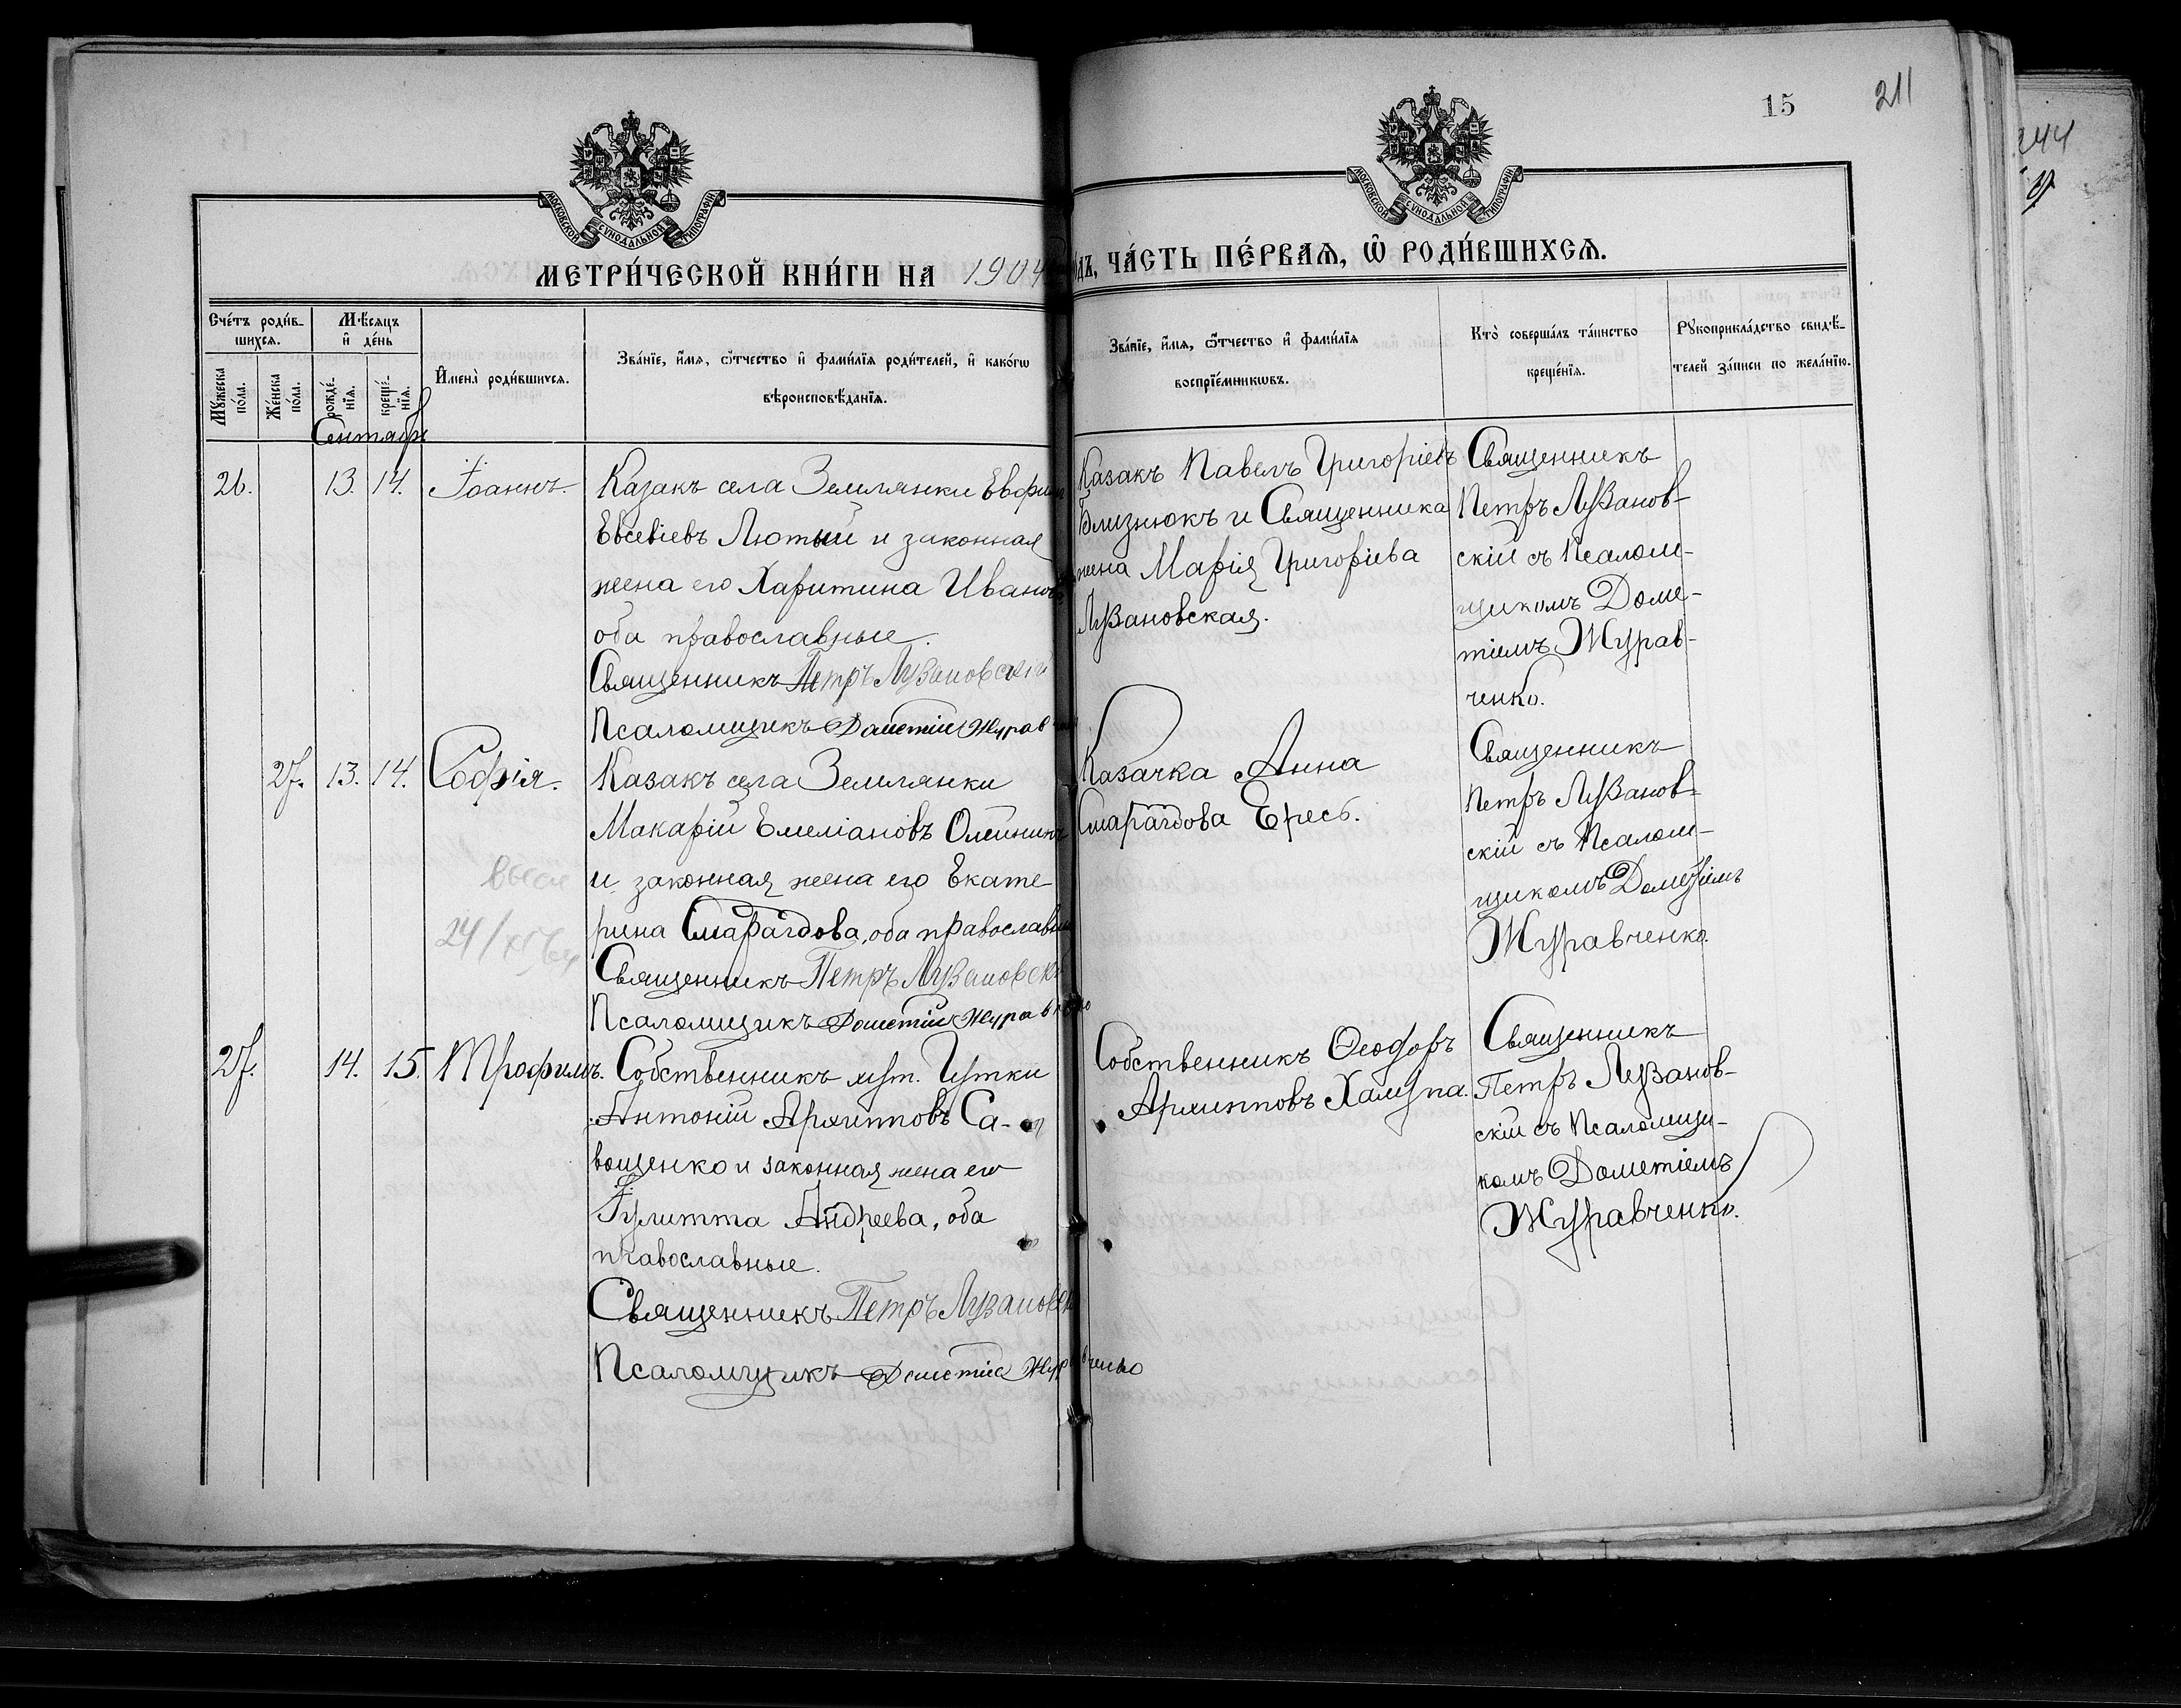 15
211
244
МОСКОВСКОЙ СѴНОДАЛЬНОЙ ТИПОГРАФІИ
МОСКОВСКОЙ СѴНОДАЛЬНОЙ ТИПОГРАФІИ
МЕТРИ́ЧЕСКОЙ КНИ́ГИ НА 1904
ДЪ, ЧА́СТЬ ПЕ́РВАѦ, Ѡ РОДИ́ВШИХСѦ.
Сче́тъ роди́в-
шихсѧ.
Мꙋ́жеска
по́ла.
Же́нска
по́ла.
Мѣ́сѧцъ
и҆ де́нь
рожде́-
нїѧ.
креще́-
нїѧ.
И҆мена̀ роди́вшихсѧ.
Зва́нїе, и҆́мѧ, ѻ҆́тчество и҆ фами́лїѧ роди́телей, и҆ како́гѡ
вѣроисповѣ́данїѧ.
Зва́нїе, и҆́мѧ, ѻ҆́тчество и҆ фами́лїѧ
воспрїе́мникѡвъ.
Кто̀ соверша́лъ та́инство
креще́нїѧ.
Рꙋкоприкла́дство свидѣ́-
телей за́писи по жела́нїю.
Сентябр
26. 13. 14. Іоаннъ.
Казакъ села Землянки
Евсевіевъ Лютый и законная
жена его Харитина Иванов
оба православные.
Священникъ Петръ Лузановскій
Псаломщикъ Дометій Журав
Казакъ Павелъ Григоріевъ
Близнюкъ и Священника
жена Марія Григоріева
Лузановская.
Священникъ
Петръ Лузанов-
скій съ Псалом-
щикомъ Доме-
тіемъ Журав-
ченко.
27. 13. 14. Софія.
Казакъ села Землянки
Макарій Емеліановъ Олейник
и законная жена его Екате-
рина Смарагдова, оба православн
Священникъ Петръ Лузановск
Псаломщикъ Дометій Журавченко
Казачка Анна
Смарагдова Ересь.
Священникъ
Петръ Лузанов-
скій съ Псалом-
щикомъ Дометіемъ
Журавченко.
27. 14. 15. Трофимъ.
Собственникъ хут. Чутки
Антоній Архиповъ Са-
вощенко и законная жена его
Іулитта Андреева, оба
православные.
Священникъ Петръ Лузановск
Псаломщикъ Дометій Журавченко
Собственникъ Ѳеодоръ
Архипповъ Халупа.
Священникъ
Петръ Лузанов-
скій съ Псаломщи-
комъ Дометіемъ
Журавченко.